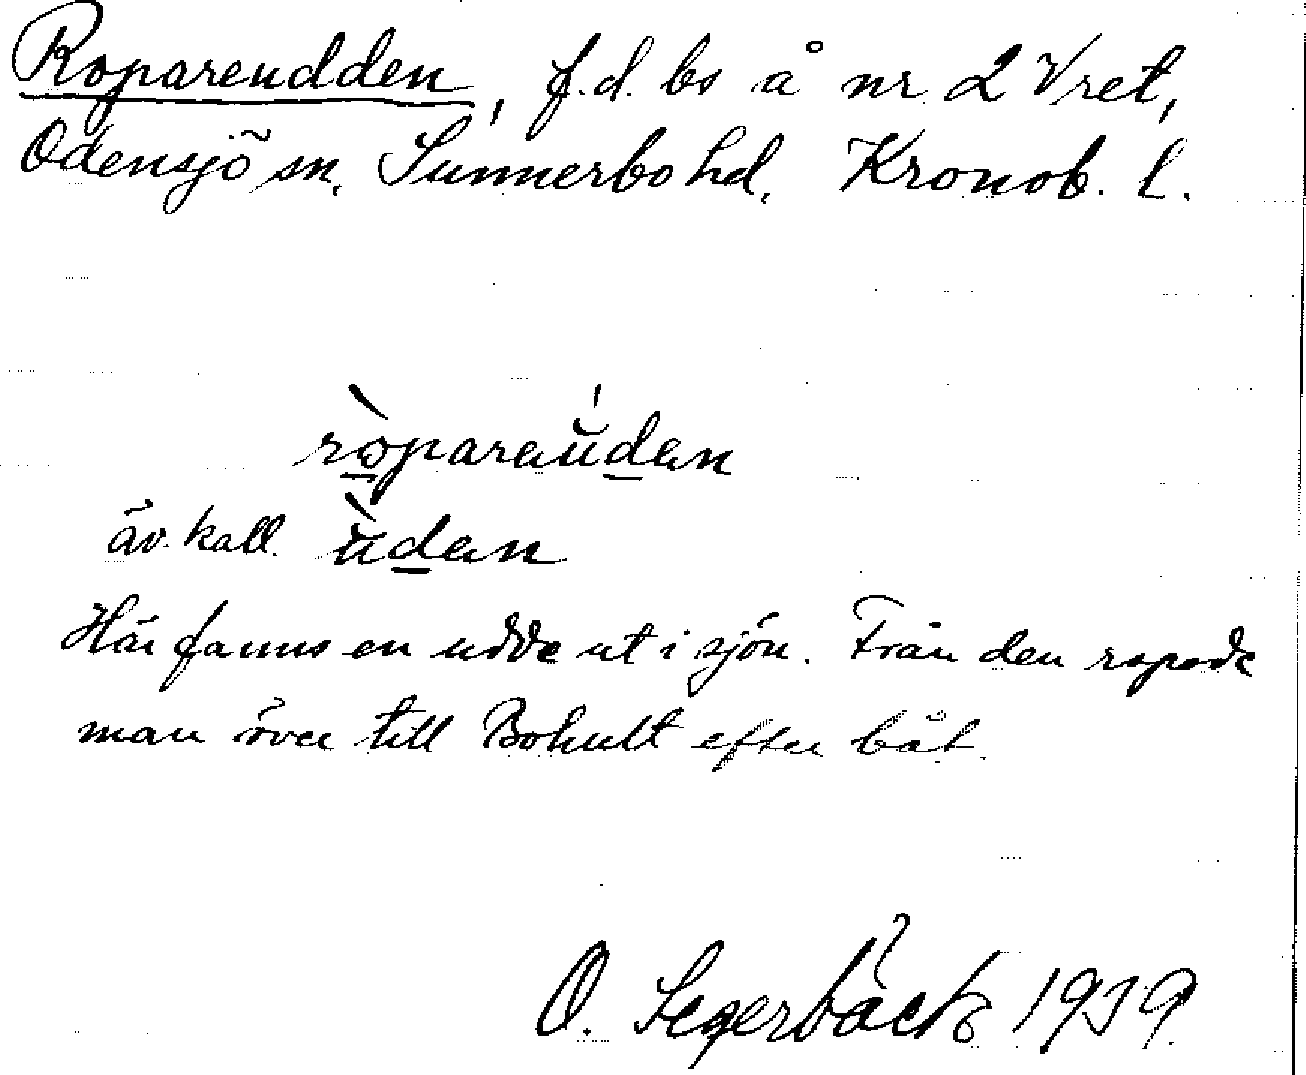 Ropareudden, f.d. bs å nr 2 Vret,
Odensjö sn, Sunnerbo hd, Kronob. l.
ròparaŭ́dan
äv. kall. ŭ̀dan
Här fanns en udde ut i sjön. Från den ropade
man över till Bohult efter båt.
O. Segerbäck 1939.